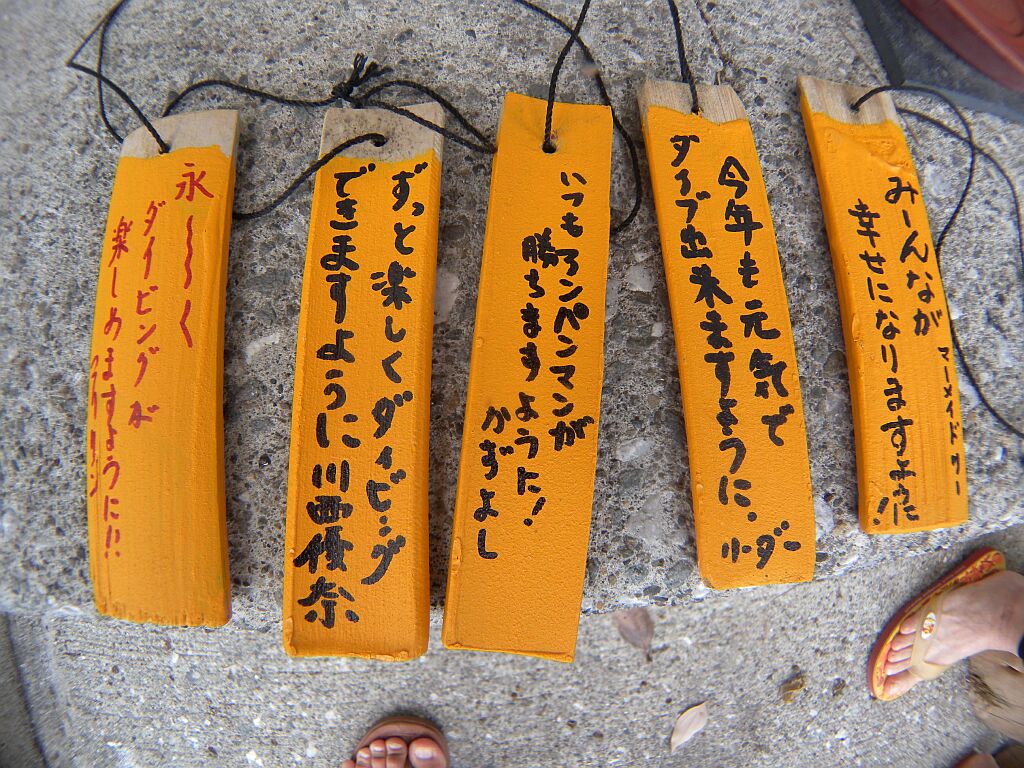 永～～く
ダイビングが
楽しめますように!!
ずっと楽しくダイビング
できますように川西優奈
いつもアンパンマンが
勝ちますように!
かずよし
今年も元気で
ダイブ出来ますように.
リーダー
みーんなが
幸せになりますように!
マーメイド